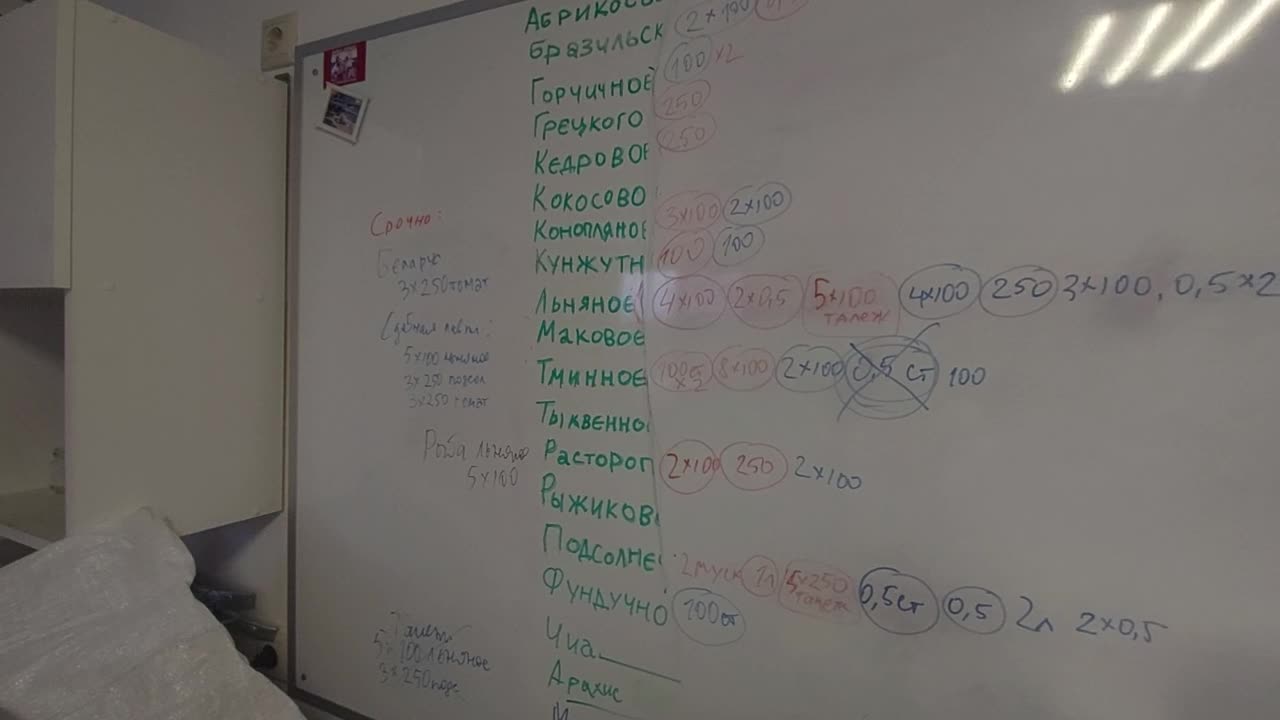 Абрикосо 2×100
Бразильск 100 ×2
Горчичное 250
Грецкого 250
Кедровое
Кокосово 3×100 2×100
Конопляное 100 100
Кунжутн
Льняное 4×100 2×0,5 5×100 талеж 4×100 250 3×100, 0,5×2
Маковое
Тминное 100ст ×2 8×100 2×100 0,5 ст 100
Тыквенно
Расторог 2×100 250 2×100
Рыжиков
Подсолне
Фундучно 100ст
2 муск 1л 5×250 талеж 0,5ст 0,5 2л 2×0,5
Чиа
Арахис
Срочно:
Беларус
3×250 томат
5×100 льняное
3×250 подсол
3×250 томат
льняно
5×100
Талеж
5×100 льняное
3×250 подс